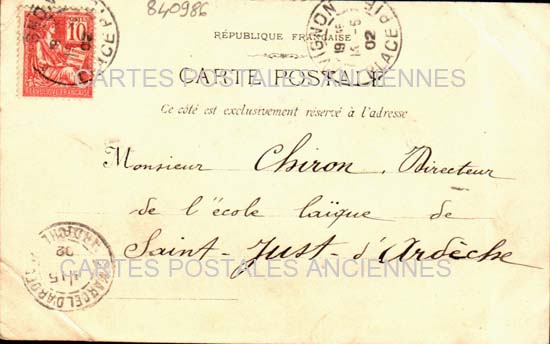 840986
10
RÉPUBLIQUE FRANÇAISE
AVIGNON
PLACE PIE
02
CARTES POSTALES ANCIENNES
CARTE POSTALE
Ce côté est exclusivement réservé à l'adresse
Monsieur Chiron, Directeur
de l'école laïque de
Saint-Just-d'Ardèche
CARTES POSTALES ANCIENNES
02